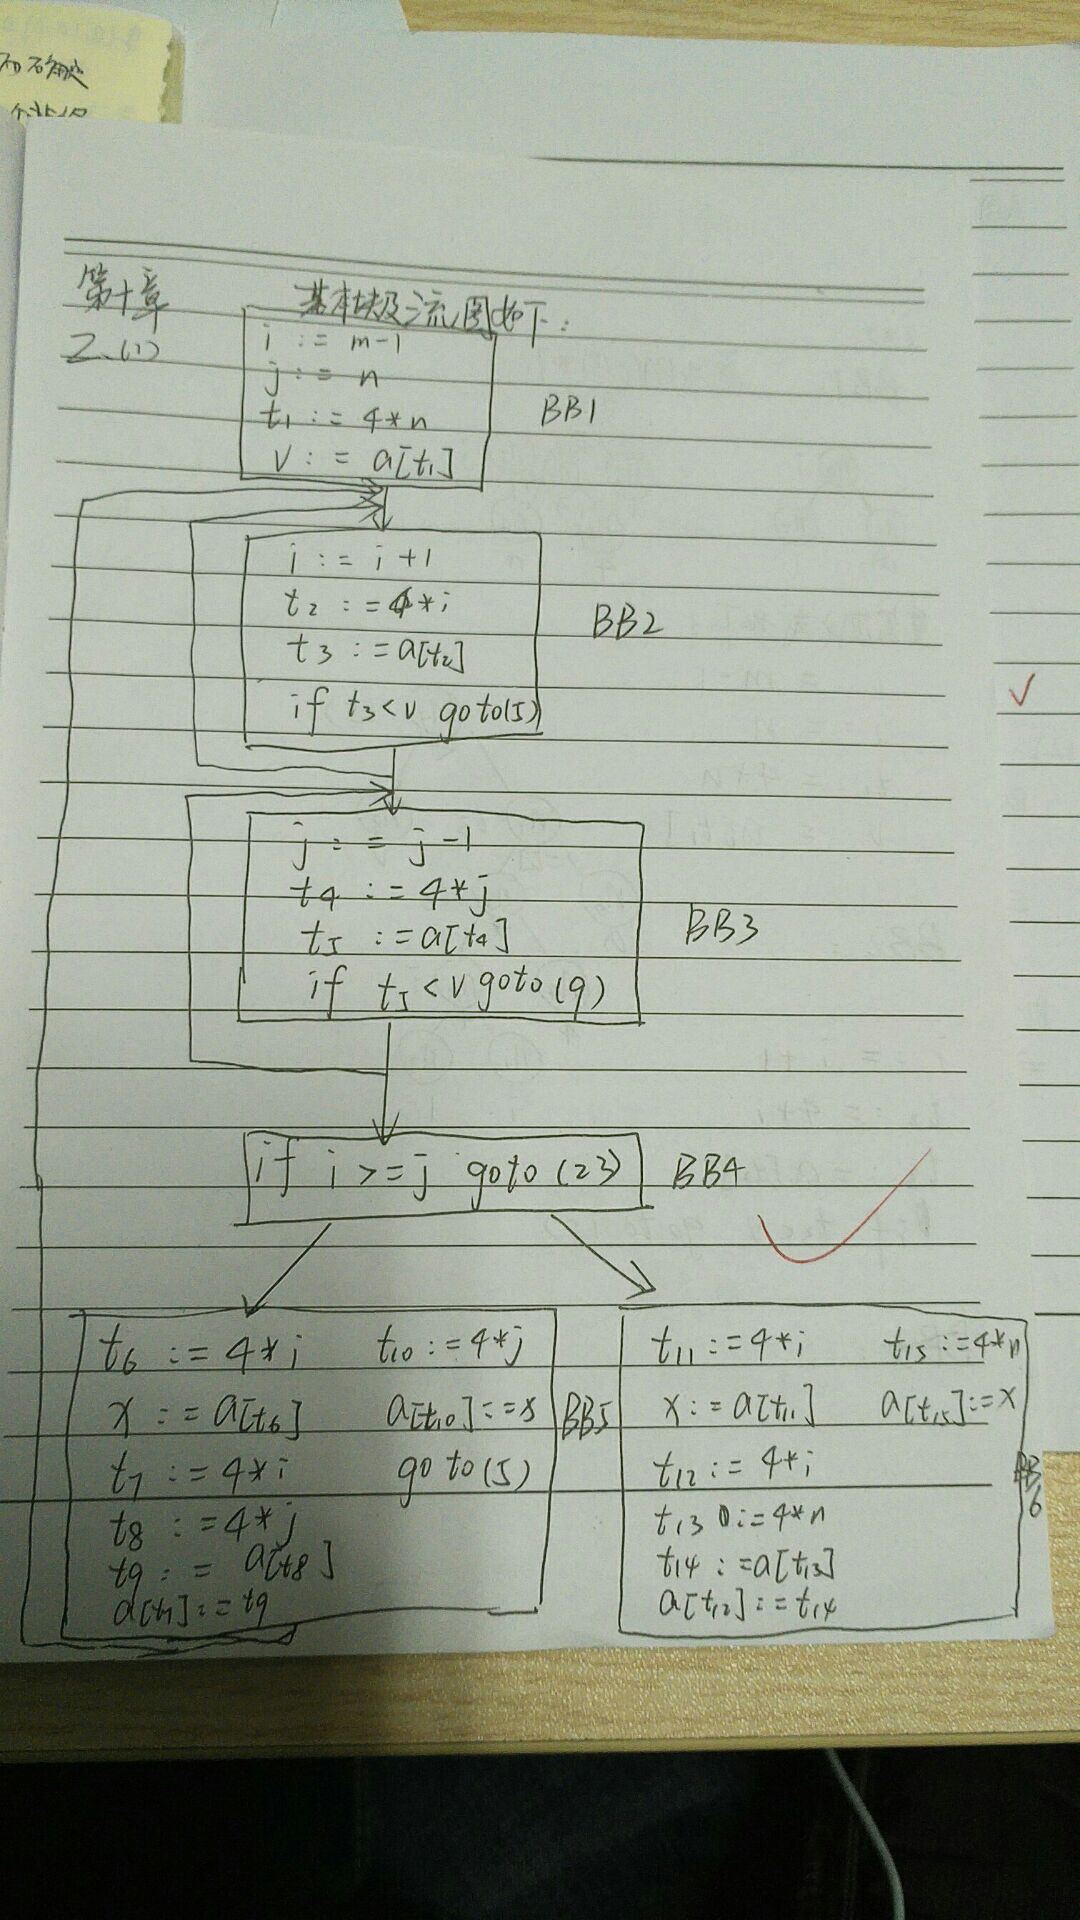 和确
第十章
2.(1)
基本块及流图如下:
i := m-1
j := n
t1 := 4*n
v := a[t1]
BB1
i := i+1
t2 := 4*i
t3 := a[t2]
if t3<v goto(5)
BB2
j := j-1
t4 := 4*j
t5 := a[t4]
if t5<v goto(9)
BB3
if i>=j goto(23)
BB4
t6 := 4*i
x := a[t6]
t7 := 4*i
t8 := 4*j
t9 := a[t8]
a[t7] := t9
t10 := 4*j
a[t10] := x
goto(5)
BB5
t11 := 4*i
x := a[t11]
t12 := 4*i
t13 := 4*n
t14 := a[t13]
a[t12] := t14
t15 := 4*n
a[t15] := x
BB6